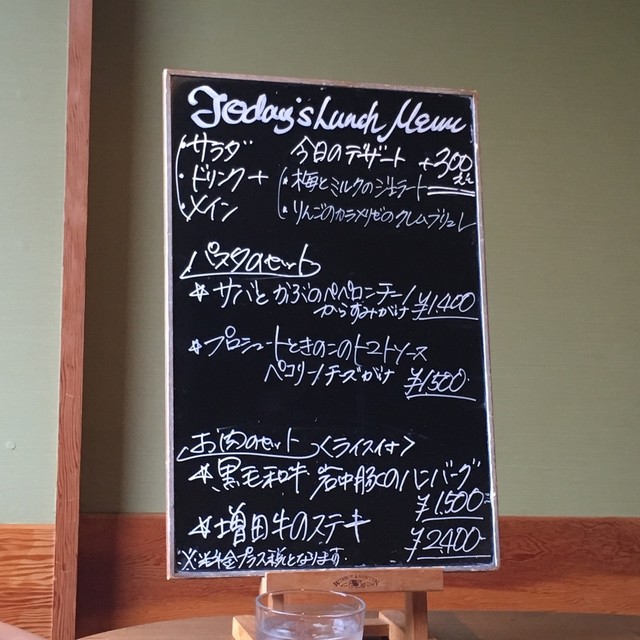 Today's Lunch Menu
・サラダ
・ドリンク +
・メイン
今日のデザート +300
・梅とミルクのジェラート
・りんごのカラメリゼのクレムブリュレ
パスタのセット
☆サバとかぶのペペロンチーノ
からすみがけ ¥1,400
☆プロシュートときのこのトマトソース
ペコリーノチーズがけ ¥1,500
お肉のセット〈ライス付〉
☆黒毛和牛 岩中豚のハンバーグ
¥1,500
☆増田牛のステーキ
¥2,400
※料金プラス税となります